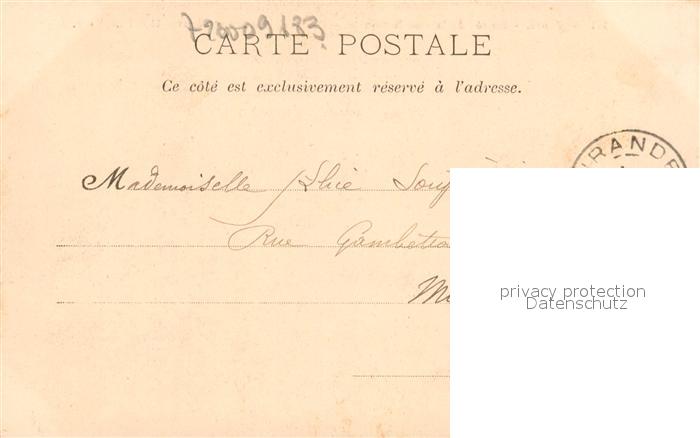 720009183
CARTE POSTALE
Ce côté est exclusivement réservé à l'adresse.
Mademoiselle
Rue Gambetta
privacy protection
Datenschutz